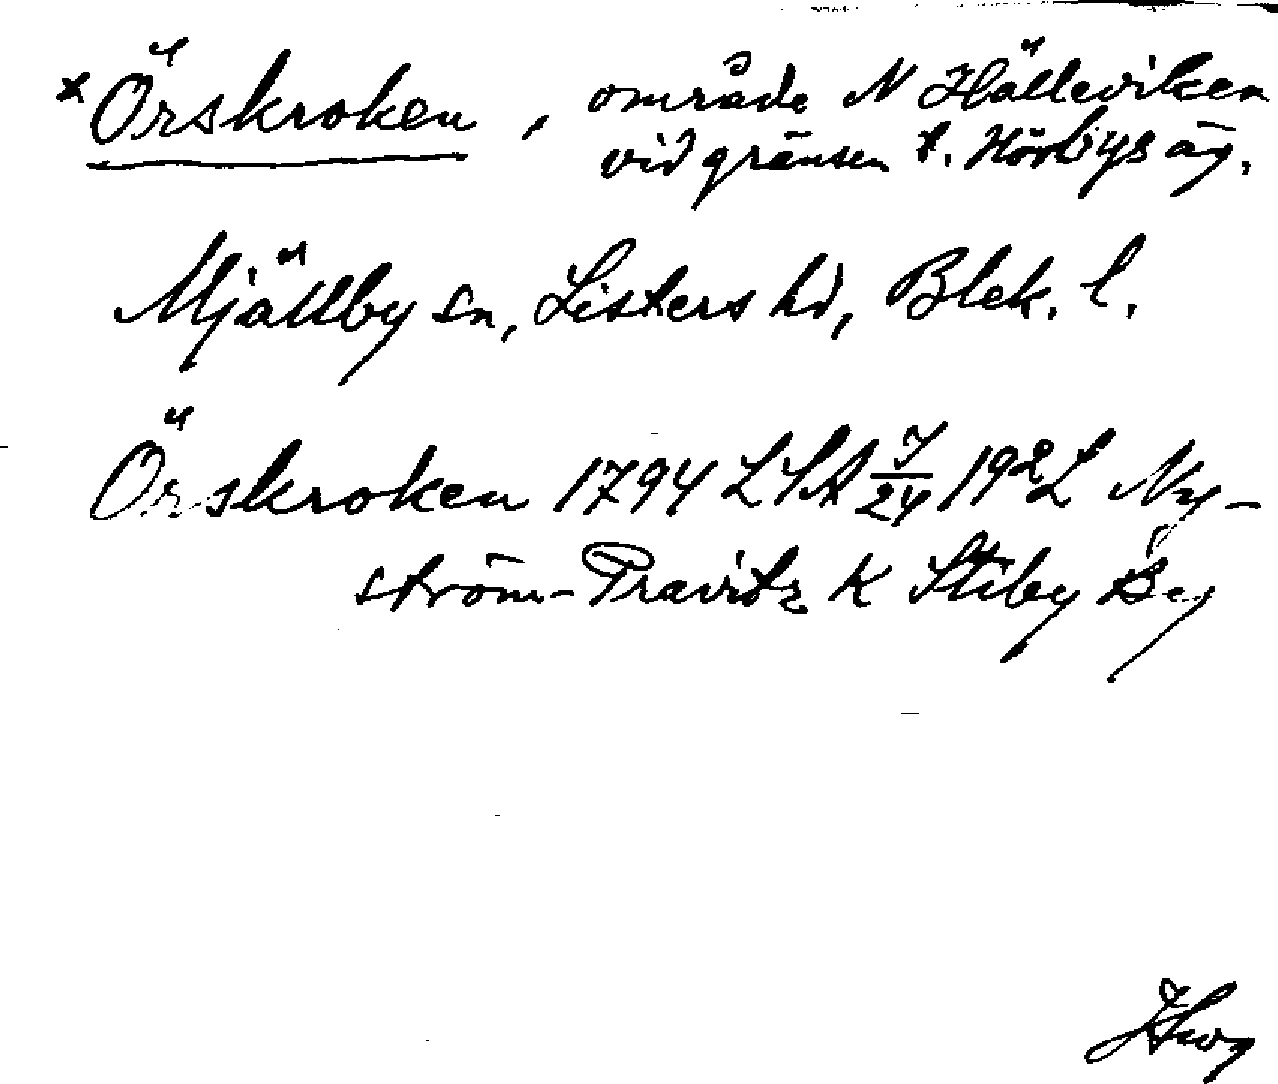 * Örskroken, område N Hälleviken
vid gränsen t. Hörbys äg.
Mjällby sn, Listers hd, Blek. l.
Örskroken 1794 LSA I/24 19² L Ny-
ström-Pravitz K Stiby By